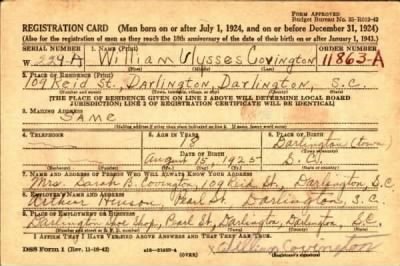 FORM APPROVED
Budget Bureau No. 33-R012-42
REGISTRATION CARD—(Men born on or after July 1, 1924, and on or before December 31, 1924)
(Also for the registration of men as they reach the 18th anniversary of the date of their birth on or after January 1, 1943.)
SERIAL NUMBER 1. Name (Print) ORDER NUMBER
W-224-A William Ulysses Covington 11863-A
(First) (Middle) (Last)
2. Place of Residence (Print)
109 Reid St., Darlington, Darlington S.C.
(Number and street) (Town, township, village, or city) (County) (State)
[THE PLACE OF RESIDENCE GIVEN ON LINE 2 ABOVE WILL DETERMINE LOCAL BOARD
JURISDICTION; LINE 2 OF REGISTRATION CERTIFICATE WILL BE IDENTICAL]
3. Mailing Address
Same
(Mailing address if other than place indicated on line 2. If same, insert word same)
4. Telephone 5. Age in Years 6. Place of Birth
18 Darlington
Date of Birth (Town or county)
August 15, 1925 S.C.
(Exchange) (Number) (Mo.) (Day) (Yr.) (State or country)
7. Name and Address of Person Who Will Always Know Your Address
Mrs. Sarah B. Covington, 109 Reid St., Darlington, S.C.
8. Employer's Name and Address
Hinson, Pearl St. Darlington, S.C.
9. Place of Employment or Business
Darlington Shoe Shop, Pearl St., Darlington, Darlington, S.C.
(Number and street or R. F. D. number) (Town) (County) (State)
I Affirm That I Have Verified Above Answers and That They Are True.
DSS Form 1 (Rev. 11-16-42) (OVER) William Covington
(Registrant's signature)